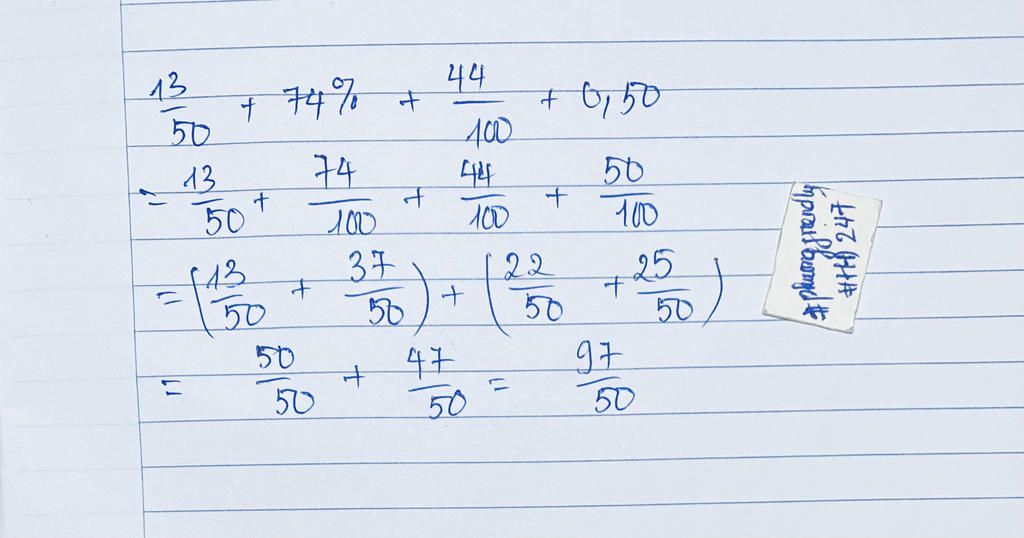 13/50 + 74% + 44/100 + 0,50
= 13/50 + 74/100 + 44/100 + 50/100
= (13/50 + 37/50) + (22/50 + 25/50)
= 50/50 + 47/50 = 97/50
#phuongfriendly
#HH 247